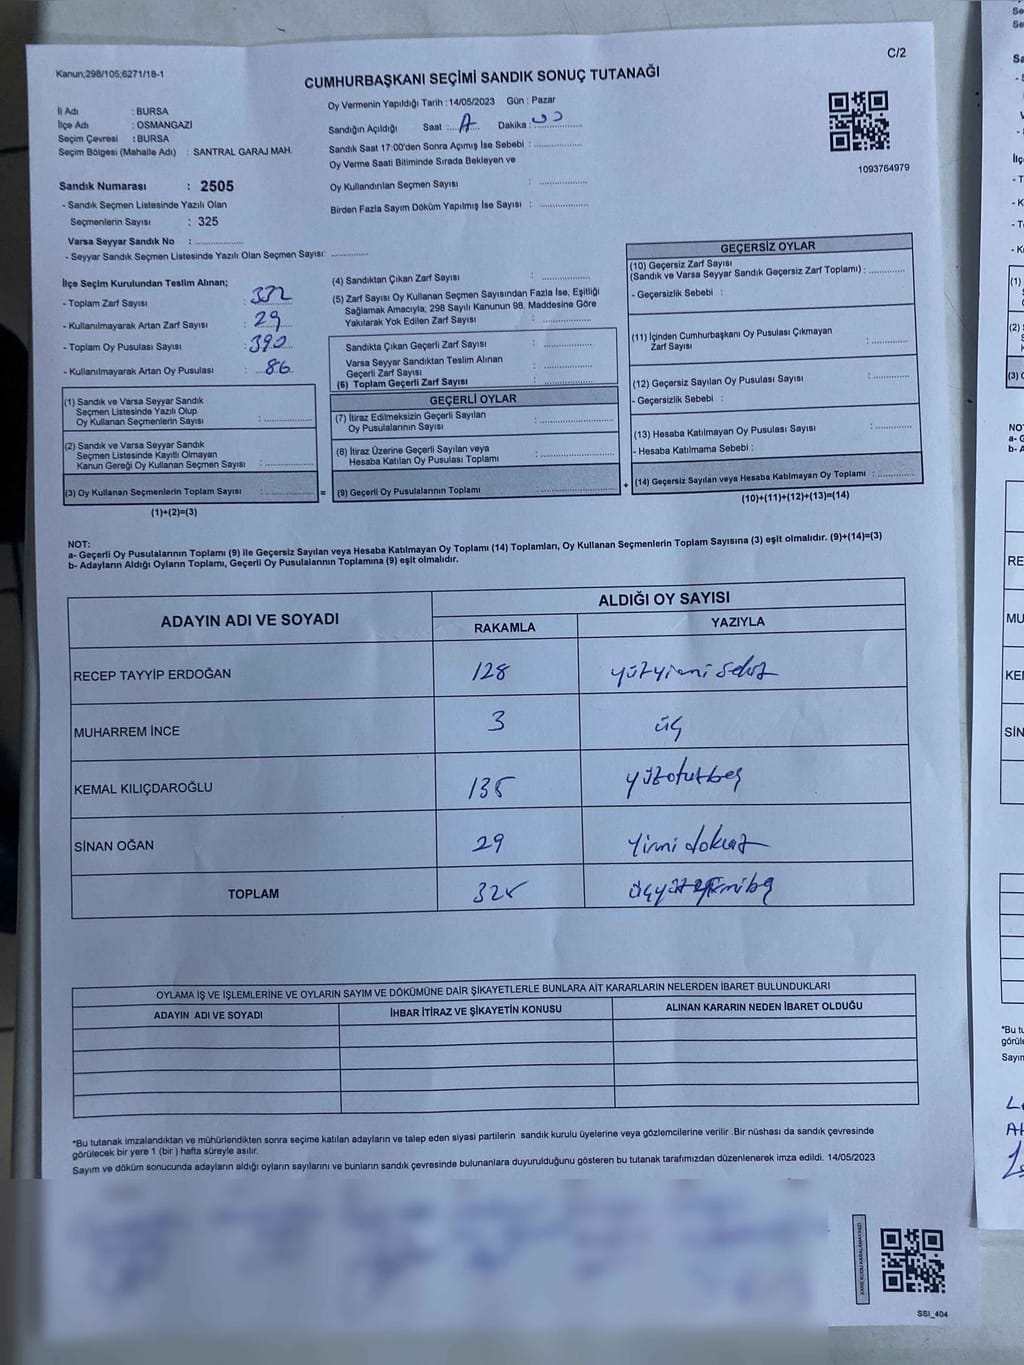 C/2
Kanun;298/105;6271/18-1
CUMHURBAŞKANI SEÇİMİ SANDIK SONUÇ TUTANAĞI
İl Adı : BURSA
İlçe Adı : OSMANGAZİ
Seçim Çevresi : BURSA
Seçim Bölgesi (Mahalle Adı) : SANTRAL GARAJ MAH.
Oy Vermenin Yapıldığı Tarih : 14/05/2023 Gün : Pazar
Sandığın Açıldığı Saat : Dakika :
Sandık Saat 17:00'den Sonra Açımış İse Sebebi :
Oy Verme Saati Bitiminde Sırada Bekleyen ve
Oy Kullandırılan Seçmen Sayısı :
Birden Fazla Sayım Döküm Yapılmış İse Sayısı :
1093764979
Sandık Numarası : 2505
- Sandık Seçmen Listesinde Yazılı Olan
Seçmenlerin Sayısı : 325
Varsa Seyyar Sandık No :
- Seyyar Sandık Seçmen Listesinde Yazılı Olan Seçmen Sayısı:
İlçe Seçim Kurulundan Teslim Alınan;
- Toplam Zarf Sayısı :
- Kullanılmayarak Artan Zarf Sayısı : 29
- Toplam Oy Pusulası Sayısı : 390
- Kullanılmayarak Artan Oy Pusulası : 86
(1) Sandık ve Varsa Seyyar Sandık
Seçmen Listesinde Yazılı Olup
Oy Kullanan Seçmenlerin Sayısı :
(2) Sandık ve Varsa Seyyar Sandık
Seçmen Listesinde Kayıtlı Olmayan
Kanun Gereği Oy Kullanan Seçmen Sayısı :
(3) Oy Kullanan Seçmenlerin Toplam Sayısı :
(1)+(2)=(3)
=
(4) Sandıktan Çıkan Zarf Sayısı :
(5) Zarf Sayısı Oy Kullanan Seçmen Sayısından Fazla İse, Eşitliği
Sağlamak Amacıyla; 298 Sayılı Kanunun 98. Maddesine Göre
Yakılarak Yok Edilen Zarf Sayısı :
Sandıkta Çıkan Geçerli Zarf Sayısı :
Varsa Seyyar Sandıktan Teslim Alınan
Geçerli Zarf Sayısı :
(6) Toplam Geçerli Zarf Sayısı :
GEÇERLİ OYLAR
(7) İtiraz Edilmeksizin Geçerli Sayılan
Oy Pusulalarının Sayısı :
(8) İtiraz Üzerine Geçerli Sayılan ve
Hesaba Katılan Oy Pusulası Toplamı :
(9) Geçerli Oy Pusulalarının Toplamı :
+
GEÇERSİZ OYLAR
(10) Geçersiz Zarf Sayısı
(Sandık ve Varsa Seyyar Sandık Geçersiz Zarf Toplamı) :
- Geçersizlik Sebebi :
(11) İçinden Cumhurbaşkanı Oy Pusulası Çıkmayan
Zarf Sayısı :
(12) Geçersiz Sayılan Oy Pusulası Sayısı :
- Geçersizlik Sebebi :
(13) Hesaba Katılmayan Oy Pusulası Sayısı :
- Hesaba Katılmama Sebebi :
(14) Geçersiz Sayılan veya Hesaba Katılmayan Oy Toplamı :
(10)+(11)+(12)+(13)=(14)
NOT:
a- Geçerli Oy Pusulalarının Toplamı (9) ile Geçersiz Sayılan veya Hesaba Katılmayan Oy Toplamı (14) Toplamları, Oy Kullanan Seçmenlerin Toplam Sayısına (3) eşit olmalıdır. (9)+(14)=(3)
b- Adayların Aldığı Oyların Toplamı, Geçerli Oy Pusulalarının Toplamına (9) eşit olmalıdır.
ADAYIN ADI VE SOYADI ALDIĞI OY SAYISI
RAKAMLA YAZIYLA
RECEP TAYYİP ERDOĞAN 128 yüzyirmi sekiz
MUHARREM İNCE 3 üç
KEMAL KILIÇDAROĞLU 135 yüzotuzbeş
SİNAN OĞAN 29 Yirmi dokuz
TOPLAM 325 üçyüzyirmibeş
OYLAMA İŞ VE İŞLEMLERİNE VE OYLARIN SAYIM VE DÖKÜMÜNE DAİR ŞİKAYETLERLE BUNLARA AİT KARARLARIN NELERDEN İBARET BULUNDUKLARI
ADAYIN ADI VE SOYADI İHBAR İTİRAZ VE ŞİKAYETİN KONUSU ALINAN KARARIN NEDEN İBARET OLDUĞU
*Bu tutanak imzalandıktan ve mühürlendikten sonra seçime katılan adayların ve talep eden siyasi partilerin sandık kurulu üyelerine veya gözlemcilerine verilir .Bir nüshası da sandık çevresinde
görülecek bir yere 1 (bir ) hafta süreyle asılır.
Sayım ve döküm sonucunda adayların aldığı oyların sayılarını ve bunların sandık çevresinde bulunanlara duyurulduğunu gösteren bu tutanak tarafımızdan düzenlenerek imza edildi. 14/05/2023
SSI_404